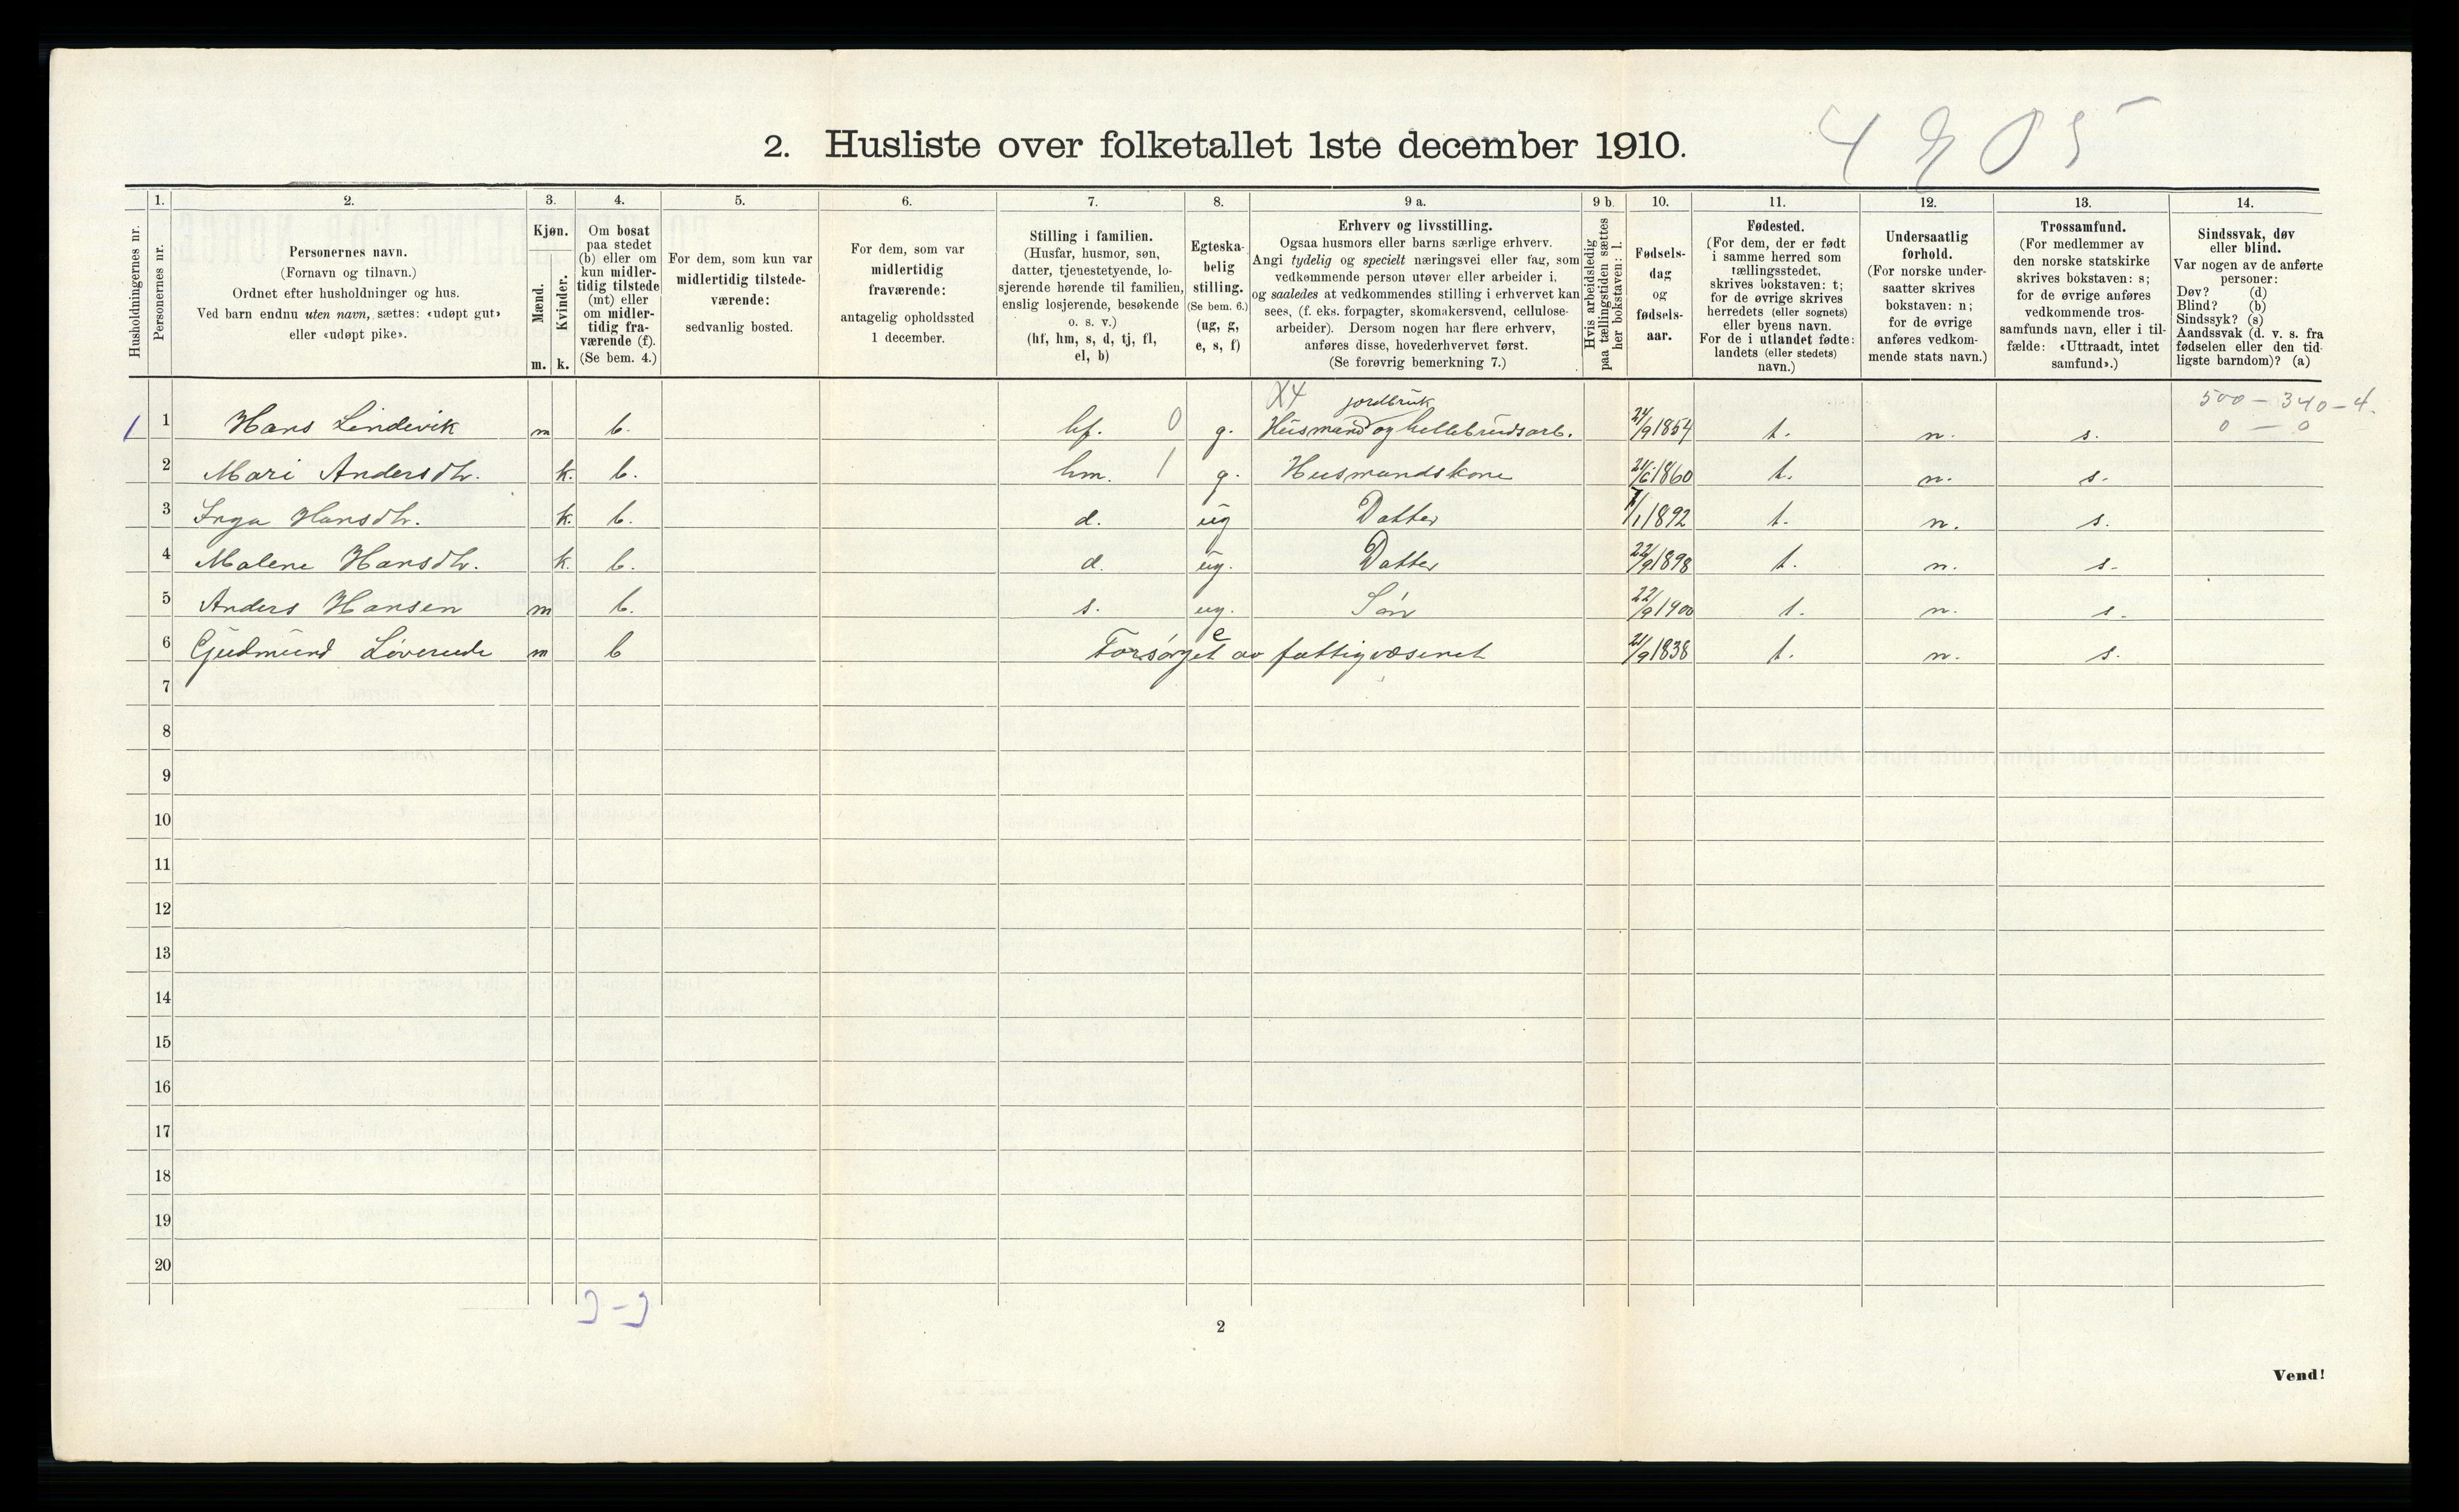 2. Husliste over folketallet 1ste december 1910.
Husholdningernes nr.
1.
Personernes nr.
2.
Personernes navn.
(Fornavn og tilnavn.)
Ordnet efter husholdninger og hus.
Ved barn endnu uten navn, sættes: «udøpt gut»
eller «udøpt pike».
3.
Kjøn.
Mænd.
Kvinder.
m.
k.
4.
Om bosat
paa stedet
(b) eller om
kun midler-
tidig tilstede
(mt) eller
om midler-
tidig fra-
værende (f).
(Se bem. 4.)
5.
For dem, som kun var
midlertidig tilstede-
værende:
sedvanlig bosted.
6.
For dem, som var
midlertidig
fraværende:
antagelig opholdssted
1 december.
7.
Stilling i familien.
(Husfar, husmor, søn,
datter, tjenestetyende, lo-
sjerende hørende til familien,
enslig losjerende, besøkende
o. s. v.)
(hf, hm, s, d, tj, fl,
el, b)
8.
Egteska-
belig
stilling.
(Se bem. 6.)
(ug, g,
e, s, f)
9 a.
Erhverv og livsstilling.
Ogsaa husmors eller barns særlige erhverv.
Angi tydelig og specielt næringsvei eller fag, som
vedkommende person utøver eller arbeider i,
og saaledes at vedkommendes stilling i erhvervet kan
sees, (f. eks. forpagter, skomakersvend, cellulose-
arbeider). Dersom nogen har flere erhverv,
anføres disse, hovederhvervet først.
(Se forøvrig bemerkning 7.)
9 b.
Hvis arbeidsledig
paa tællingstiden sættes
her bokstaven: l.
10.
Fødsels-
dag
og
fødsels-
aar.
11.
Fødested.
(For dem, der er født
i samme herred som
tællingsstedet,
skrives bokstaven: t;
for de øvrige skrives
herredets (eller sognets)
eller byens navn.
For de i utlandet fødte:
landets (eller stedets)
navn.)
12.
Undersaatlig
forhold.
(For norske under-
saatter skrives
bokstaven: n;
for de øvrige
anføres vedkom-
mende stats navn.)
13.
Trossamfund.
(For medlemmer av
den norske statskirke
skrives bokstaven: s;
for de øvrige anføres
vedkommende tros-
samfunds navn, eller i til-
fælde: «Uttraadt, intet
samfund».)
14.
Sindssvak, døv
eller blind.
Var nogen av de anførte
personer:
Døv? (d)
Blind? (b)
Sindssyk? (s)
Aandssvak (d. v. s. fra
fødselen eller den tid-
ligste barndom)? (a)
X4 jordbruk
500 – 340 – 4.
0 – 0
1 1 Hans Lindevik m b. hf. 0 g. Husmand og hellebrudsarb. 24/9 1854 t. n. s.
2 Mari Andersdtr. k. b. hm. 1 g. Husmandskone 1860 t. n. s.
3 Inga Hansdtr. k. b. d. ug Datter 7/1 1892 t. n. s.
4 Malene Hansdtr. k. b. d. ug. Datter 22/9 1898 t. n. s.
5 Anders Hansen m b. s. ug. Søn 22/9 1900 t. n. s.
6 Gudmund Løverude m b e Forsørget av fattigvæsenet 21/9 1838 t. n. s.
7
8
9
10
11
12
13
14
15
16
17
18
19
20
2
Vend!